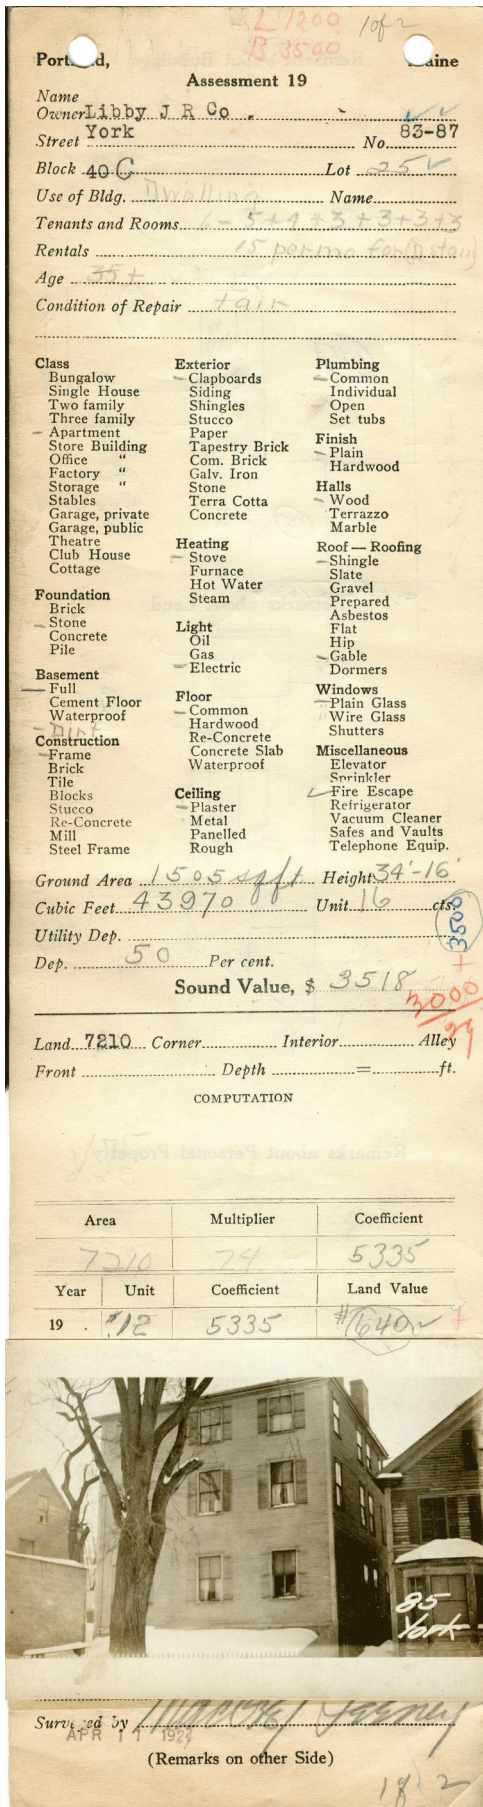 L 1200
B 3500
1 of 2
Portland, Maine
Assessment 19
Name
Owner Libby J R Co.
Street York No. 83-87
Block 40 C Lot 25
Use of Bldg. Dwelling Name
Tenants and Rooms 6 - 5+4+3+3+3+3
Rentals 15 per mo for
Age 35+
Condition of Repair Fair
Class
Bungalow
Single House
Two family
Three family
Apartment
Store Building
Office "
Factory "
Storage "
Stables
Garage, private
Garage, public
Theatre
Club House
Cottage
Foundation
Brick
Stone
Concrete
Pile
Basement
Full
Cement Floor
Waterproof
Dirt
Construction
Frame
Brick
Tile
Blocks
Stucco
Re-Concrete
Mill
Steel Frame
Exterior
Clapboards
Siding
Shingles
Stucco
Paper
Tapestry Brick
Com. Brick
Galv. Iron
Stone
Terra Cotta
Concrete
Heating
Stove
Furnace
Hot Water
Steam
Light
Oil
Gas
Electric
Floor
Common
Hardwood
Re-Concrete
Concrete Slab
Waterproof
Ceiling
Plaster
Metal
Panelled
Rough
Plumbing
Common
Individual
Open
Set tubs
Finish
Plain
Hardwood
Halls
Wood
Terrazzo
Marble
Roof — Roofing
Shingle
Slate
Gravel
Prepared
Asbestos
Flat
Hip
Gable
Dormers
Windows
Plain Glass
Wire Glass
Shutters
Miscellaneous
Elevator
Sprinkler
Fire Escape
Refrigerator
Vacuum Cleaner
Safes and Vaults
Telephone Equip.
Ground Area 1505 sq ft Height 34'-16'
Cubic Feet 43970 Unit 16 cts.
Utility Dep.
3500
Dep. 50 Per cent.
Sound Value, $ 3518
3000
Land 7210 Corner Interior Alley
Front Depth = ft.
COMPUTATION
Area Multiplier Coefficient
7210 74 5335
Year Unit Coefficient Land Value
19 . .12 5335 #640
85
York
Surveyed by
APR 11 1924
(Remarks on other Side)
1 of 2